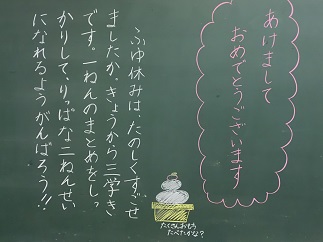 あけまして
おめでとうございます
ふゆ休みは、たのしくすごせ
ましたか。きょうから三学き
です。一ねんのまとめをしっ
かりして、りっぱな二ねんせい
になれるようがんばろう!!
たくさんおもち
たべたかな?